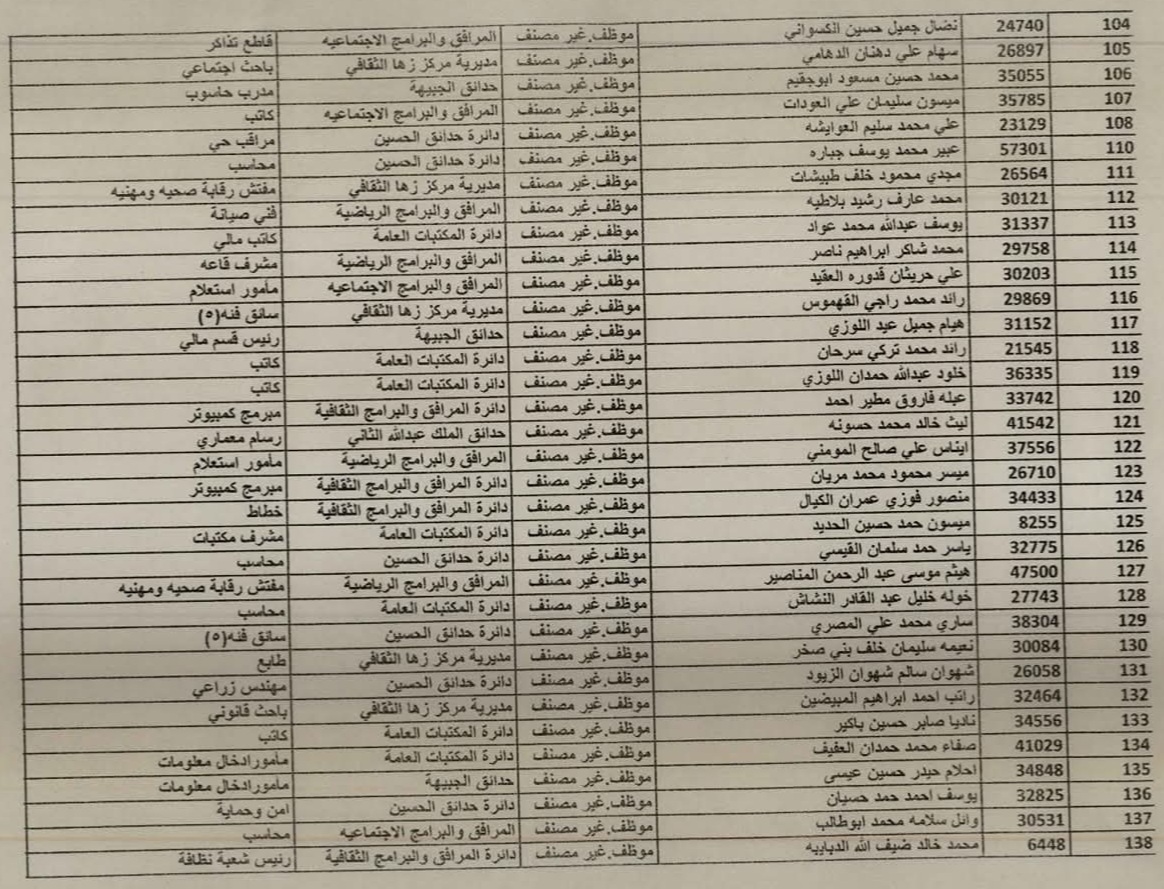 104 24740 نضال جميل حسين الكسواني موظف.غير مصنف المرافق والبرامج الاجتماعيه قاطع تذاكر
105 26897 سهام علي دهنان الدهامي موظف.غير مصنف مديرية مركز زها الثقافي باحث اجتماعي
106 35055 محمد حسين مسعود ابوجقيم موظف.غير مصنف حدائق الجبيهة مدرب حاسوب
107 35785 ميسون سليمان علي العودات موظف.غير مصنف المرافق والبرامج الاجتماعيه كاتب
108 23129 علي محمد سليم العوايشه موظف.غير مصنف دائرة حدائق الحسين مراقب حي
110 57301 عبير محمد يوسف جباره موظف.غير مصنف دائرة حدائق الحسين محاسب
111 26564 مجدي محمود خلف طبيشات موظف.غير مصنف مديرية مركز زها الثقافي مفتش رقابة صحيه ومهنيه
112 30121 محمد عارف رشيد بلاطيه موظف.غير مصنف المرافق والبرامج الرياضية فني صيانة
113 31337 يوسف عبدالله محمد عواد موظف.غير مصنف دائرة المكتبات العامة كاتب مالي
114 29758 محمد شاكر ابراهيم ناصر موظف.غير مصنف المرافق والبرامج الرياضية مشرف قاعه
115 30203 علي حريثان قدوره العقيد موظف.غير مصنف المرافق والبرامج الاجتماعيه مأمور استعلام
116 29869 رائد محمد راجي القهموس موظف.غير مصنف مديرية مركز زها الثقافي سائق فئه(٥)
117 31152 هيام جميل عيد اللوزي موظف.غير مصنف حدائق الجبيهة رئيس قسم مالي
118 21545 رائد محمد تركي سرحان موظف.غير مصنف دائرة المكتبات العامة كاتب
119 36335 خلود عبدالله حمدان اللوزي موظف.غير مصنف دائرة المكتبات العامة كاتب
120 33742 عبله فاروق مطير احمد موظف.غير مصنف دائرة المرافق والبرامج الثقافية مبرمج كمبيوتر
121 41542 ليث خالد محمد حسونه موظف.غير مصنف حدائق الملك عبدالله الثاني رسام معماري
122 37556 ايناس علي صالح المومني موظف.غير مصنف المرافق والبرامج الرياضية مأمور استعلام
123 26710 ميسر محمود محمد مريان موظف.غير مصنف دائرة المرافق والبرامج الثقافية مبرمج كمبيوتر
124 34433 منصور فوزي عمران الكيال موظف.غير مصنف دائرة المرافق والبرامج الثقافية خطاط
125 8255 ميسون حمد حسين الحديد موظف.غير مصنف دائرة المكتبات العامة مشرف مكتبات
126 32775 ياسر حمد سلمان القيسي موظف.غير مصنف دائرة حدائق الحسين محاسب
127 47500 هيثم موسى عبد الرحمن المناصير موظف.غير مصنف المرافق والبرامج الرياضية مفتش رقابة صحيه ومهنيه
128 27743 خوله خليل عبد القادر النشاش موظف.غير مصنف دائرة المكتبات العامة محاسب
129 38304 ساري محمد علي المصري موظف.غير مصنف دائرة حدائق الحسين سائق فئه(٥)
130 30084 نعيمه سليمان خلف بني صخر موظف.غير مصنف مديرية مركز زها الثقافي طابع
131 26058 شهوان سالم شهوان الزيود موظف.غير مصنف دائرة حدائق الحسين مهندس زراعي
132 32464 راتب احمد ابراهيم المبيضين موظف.غير مصنف مديرية مركز زها الثقافي باحث قانوني
133 34556 ناديا صابر حسين باكير موظف.غير مصنف دائرة المكتبات العامة كاتب
134 41029 صفاء محمد حمدان العفيف موظف.غير مصنف دائرة المكتبات العامة مأمورادخال معلومات
135 34848 احلام حيدر حسين عيسى موظف.غير مصنف حدائق الجبيهة مامورادخال معلومات
136 32825 يوسف احمد حمد حسيان موظف.غير مصنف دائرة حدائق الحسين امن وحماية
137 30531 وائل سلامه محمد ابوطالب موظف.غير مصنف المرافق والبرامج الاجتماعيه محاسب
138 6448 محمد خالد ضيف الله الدبابيه موظف.غير مصنف دائرة المرافق والبرامج الثقافية رئيس شعبة نظافة